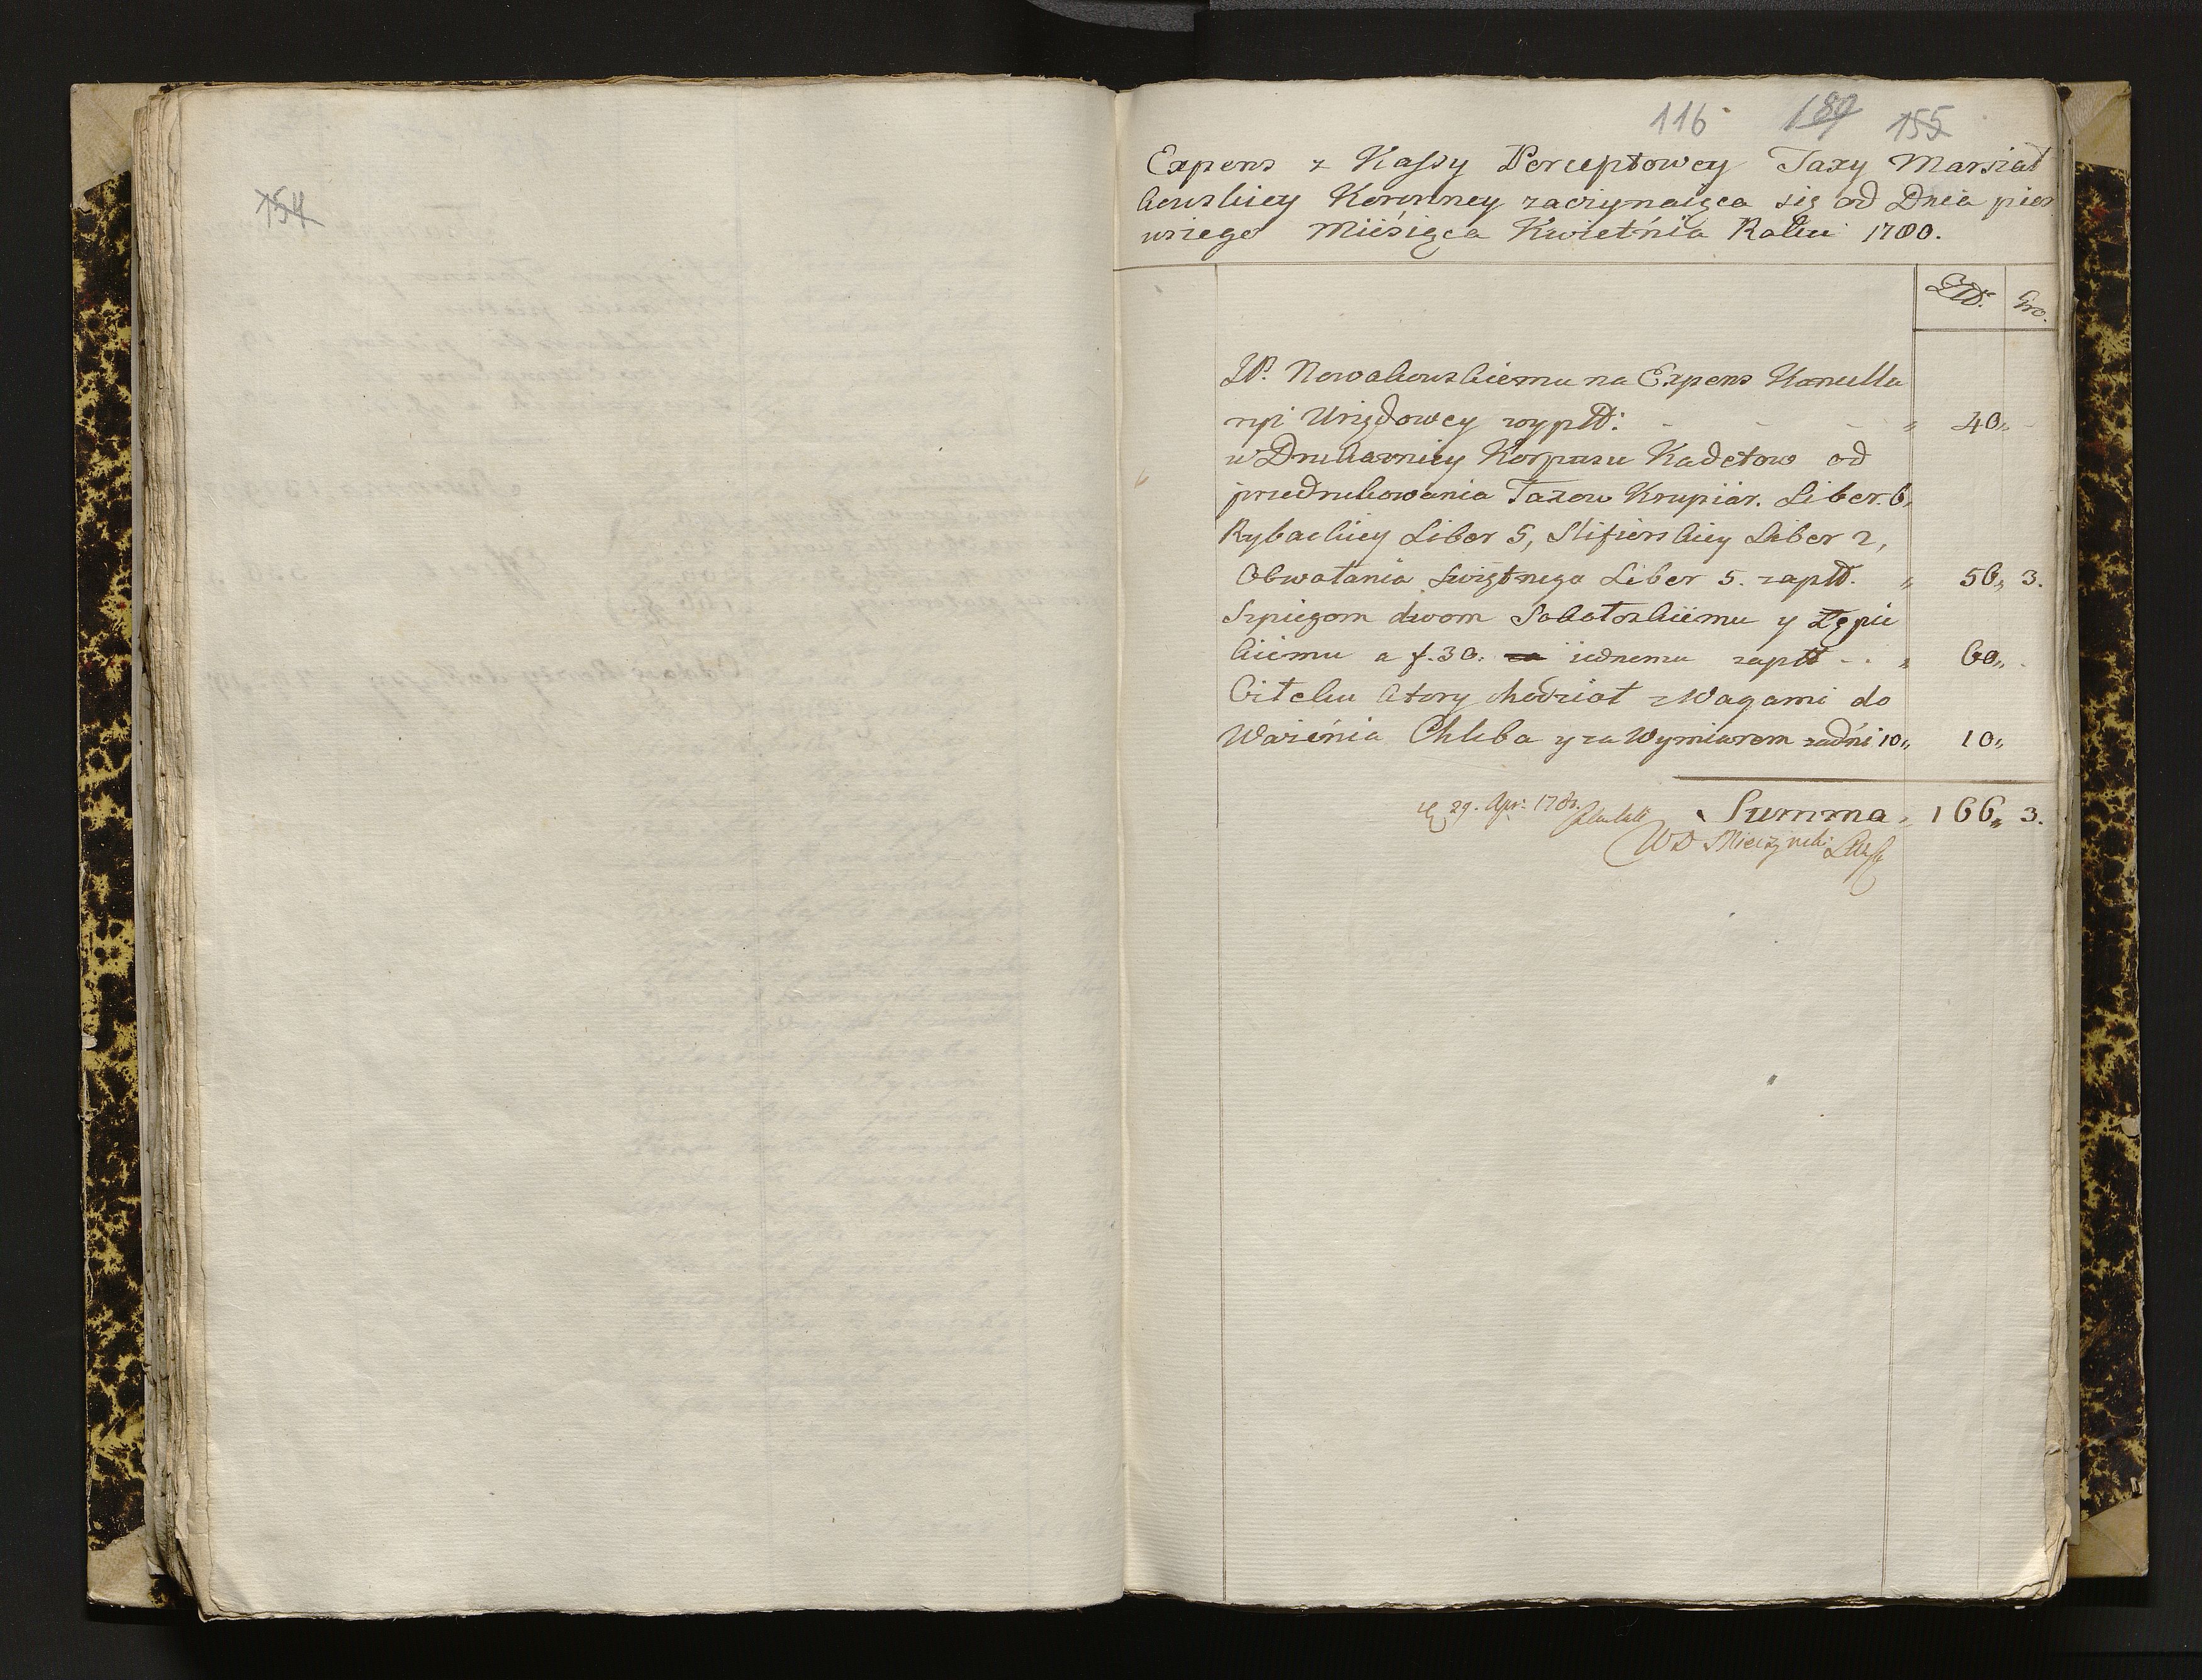 154
116 189 155
Expens z Kassy Perceptowey Taxy Marszał
kowskiey Koronney zaczynaiąca się od Dnia pier
wszego Miesiąca Kwietnia Roku 1780.
Złł. Gro.
JP. Nowakowskiemu na Expens Kancella
ryi Urzędowey wypłł: - - - " 40,, -
w Drukarniey Korpusu Kadetow od
przedrukowania Taxow Krupiar. Liber. 6,
Rybackiey Liber 5, Slifierskiey Liber 2,
Obwołania świątnego Liber 5. zapłł. " 56,, 3.
Szpiegom dwom Sobotoskiemu y Zępic
kiemu a f. 30. za iednemu zapłł - - " 60,, -
Citeku ktory chodził z Wagami do
Ważenia Chleba y za Wymiarem za dni 10,, 10,,
Summa " 166,, 3.
29. Apr: 1780.
WD Mieczynski